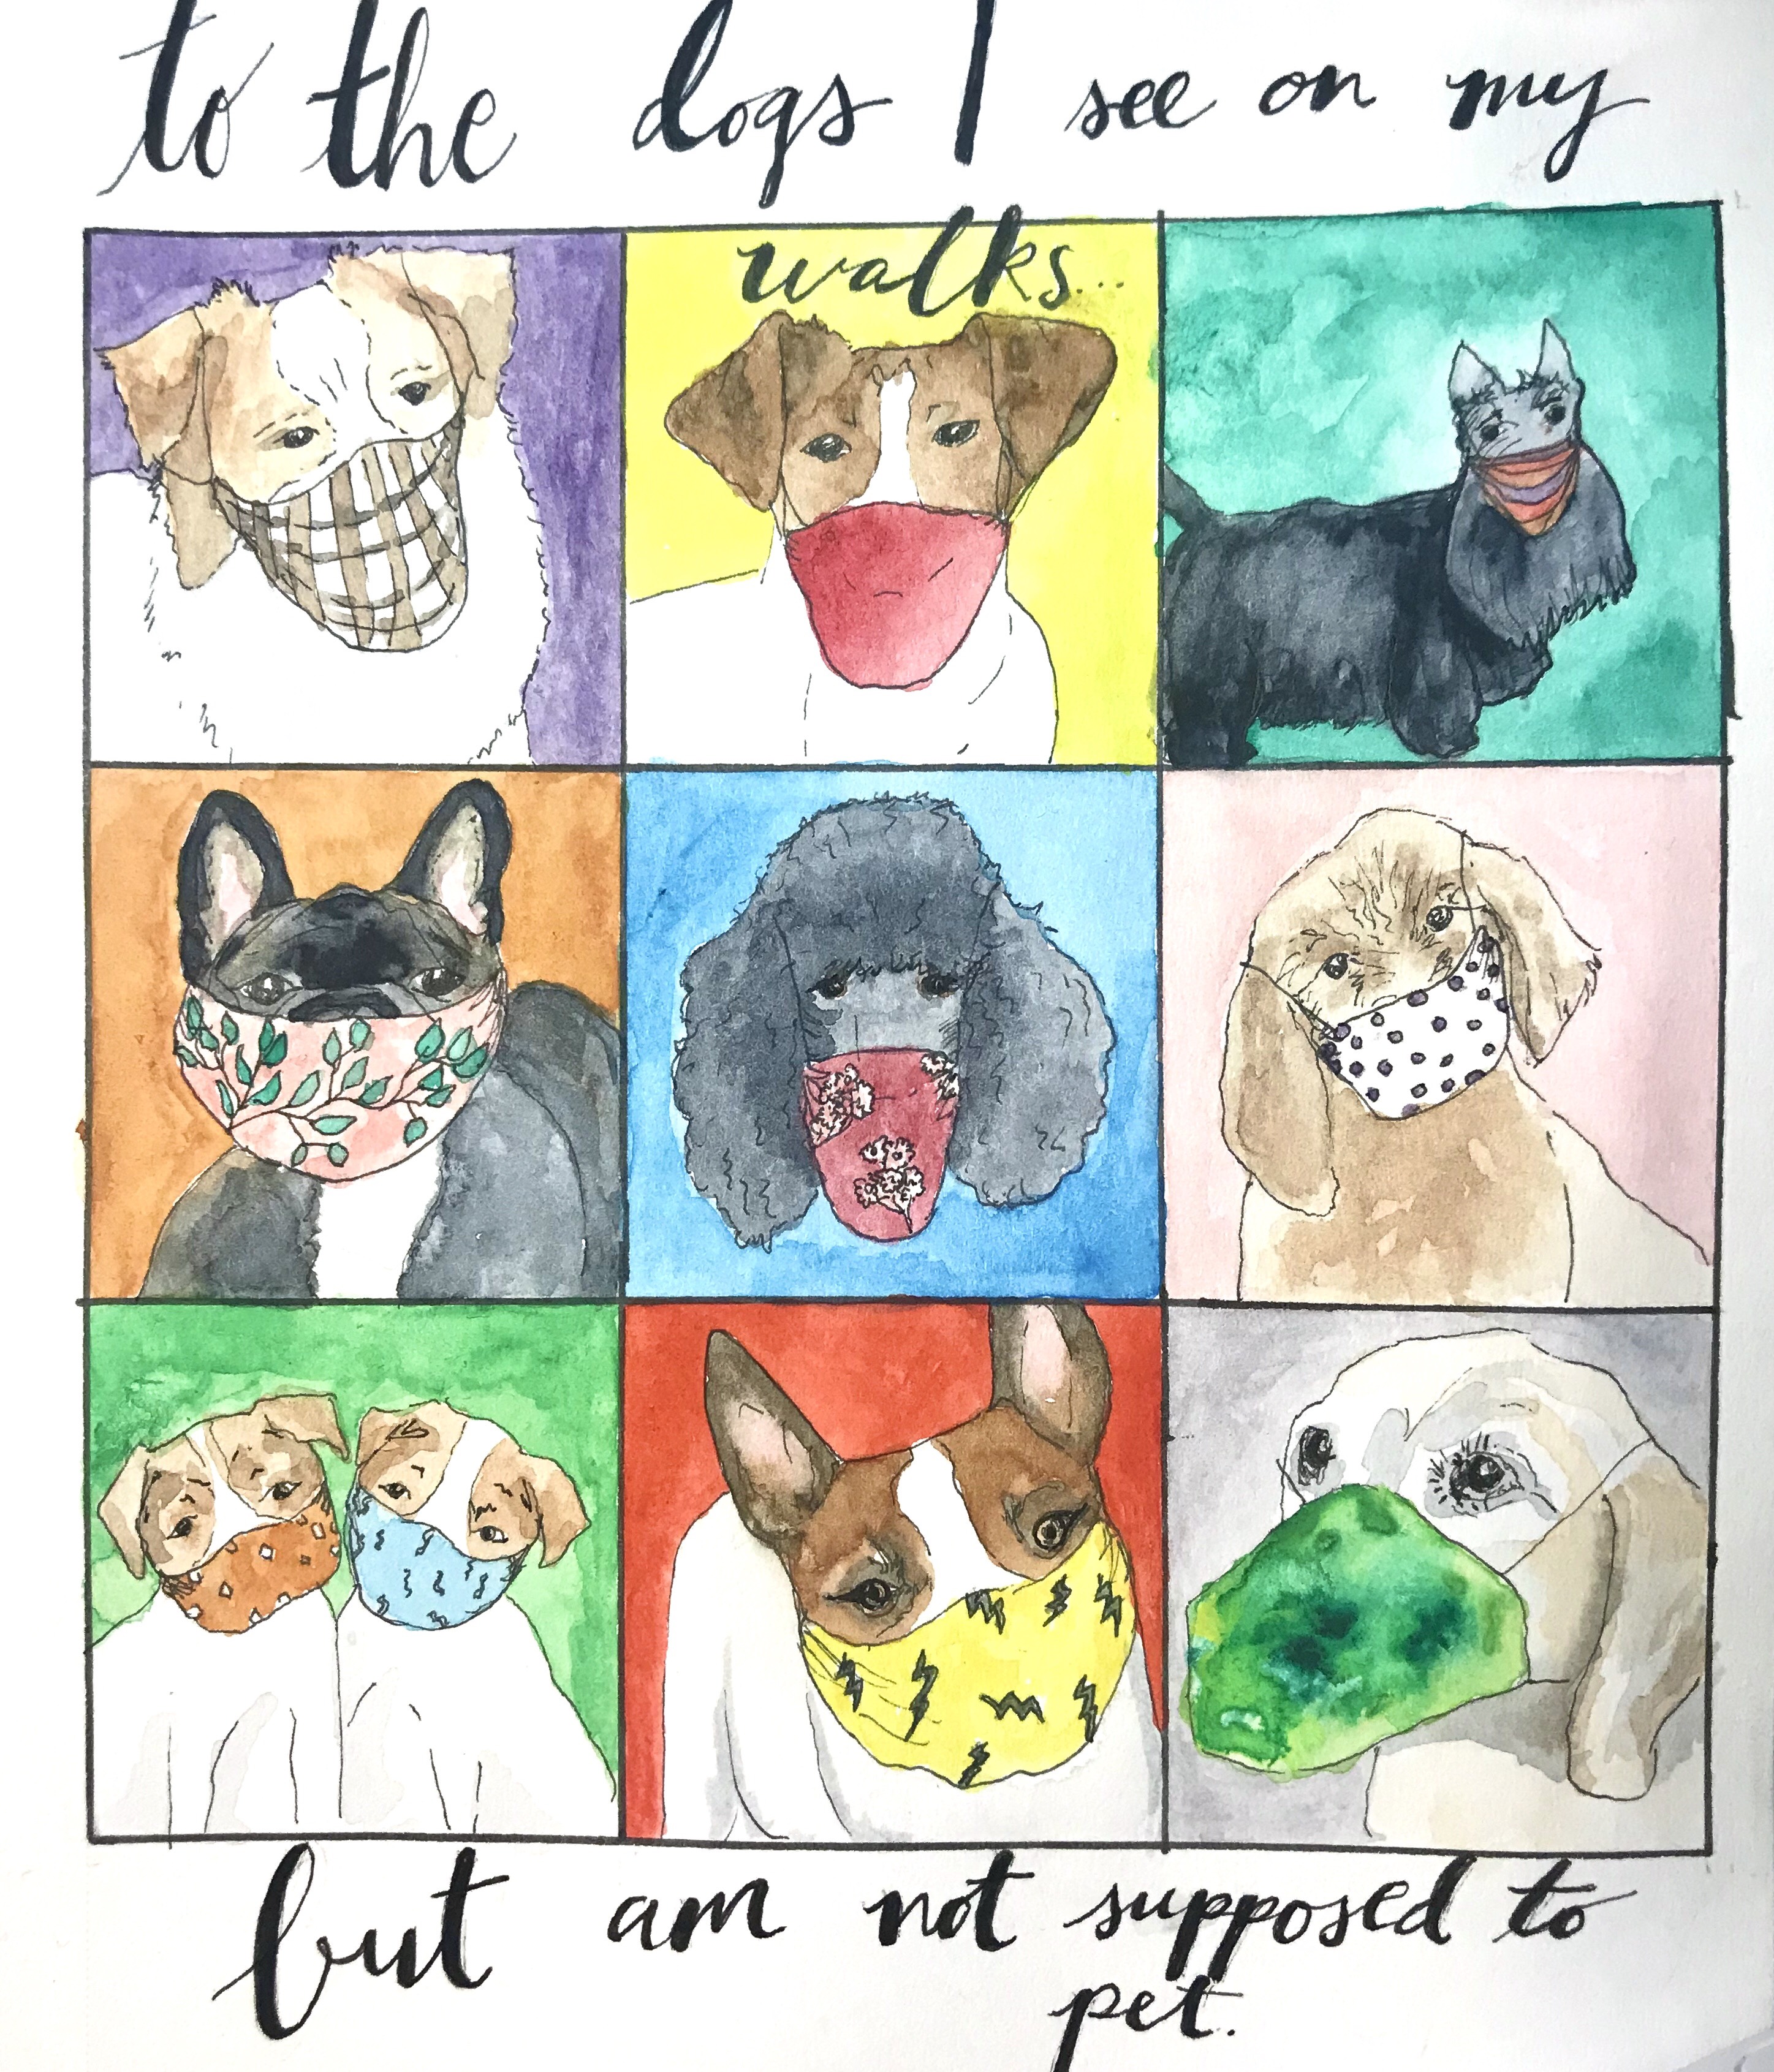 to the dogs I see on my
walks...
but am not supposed to
pet.